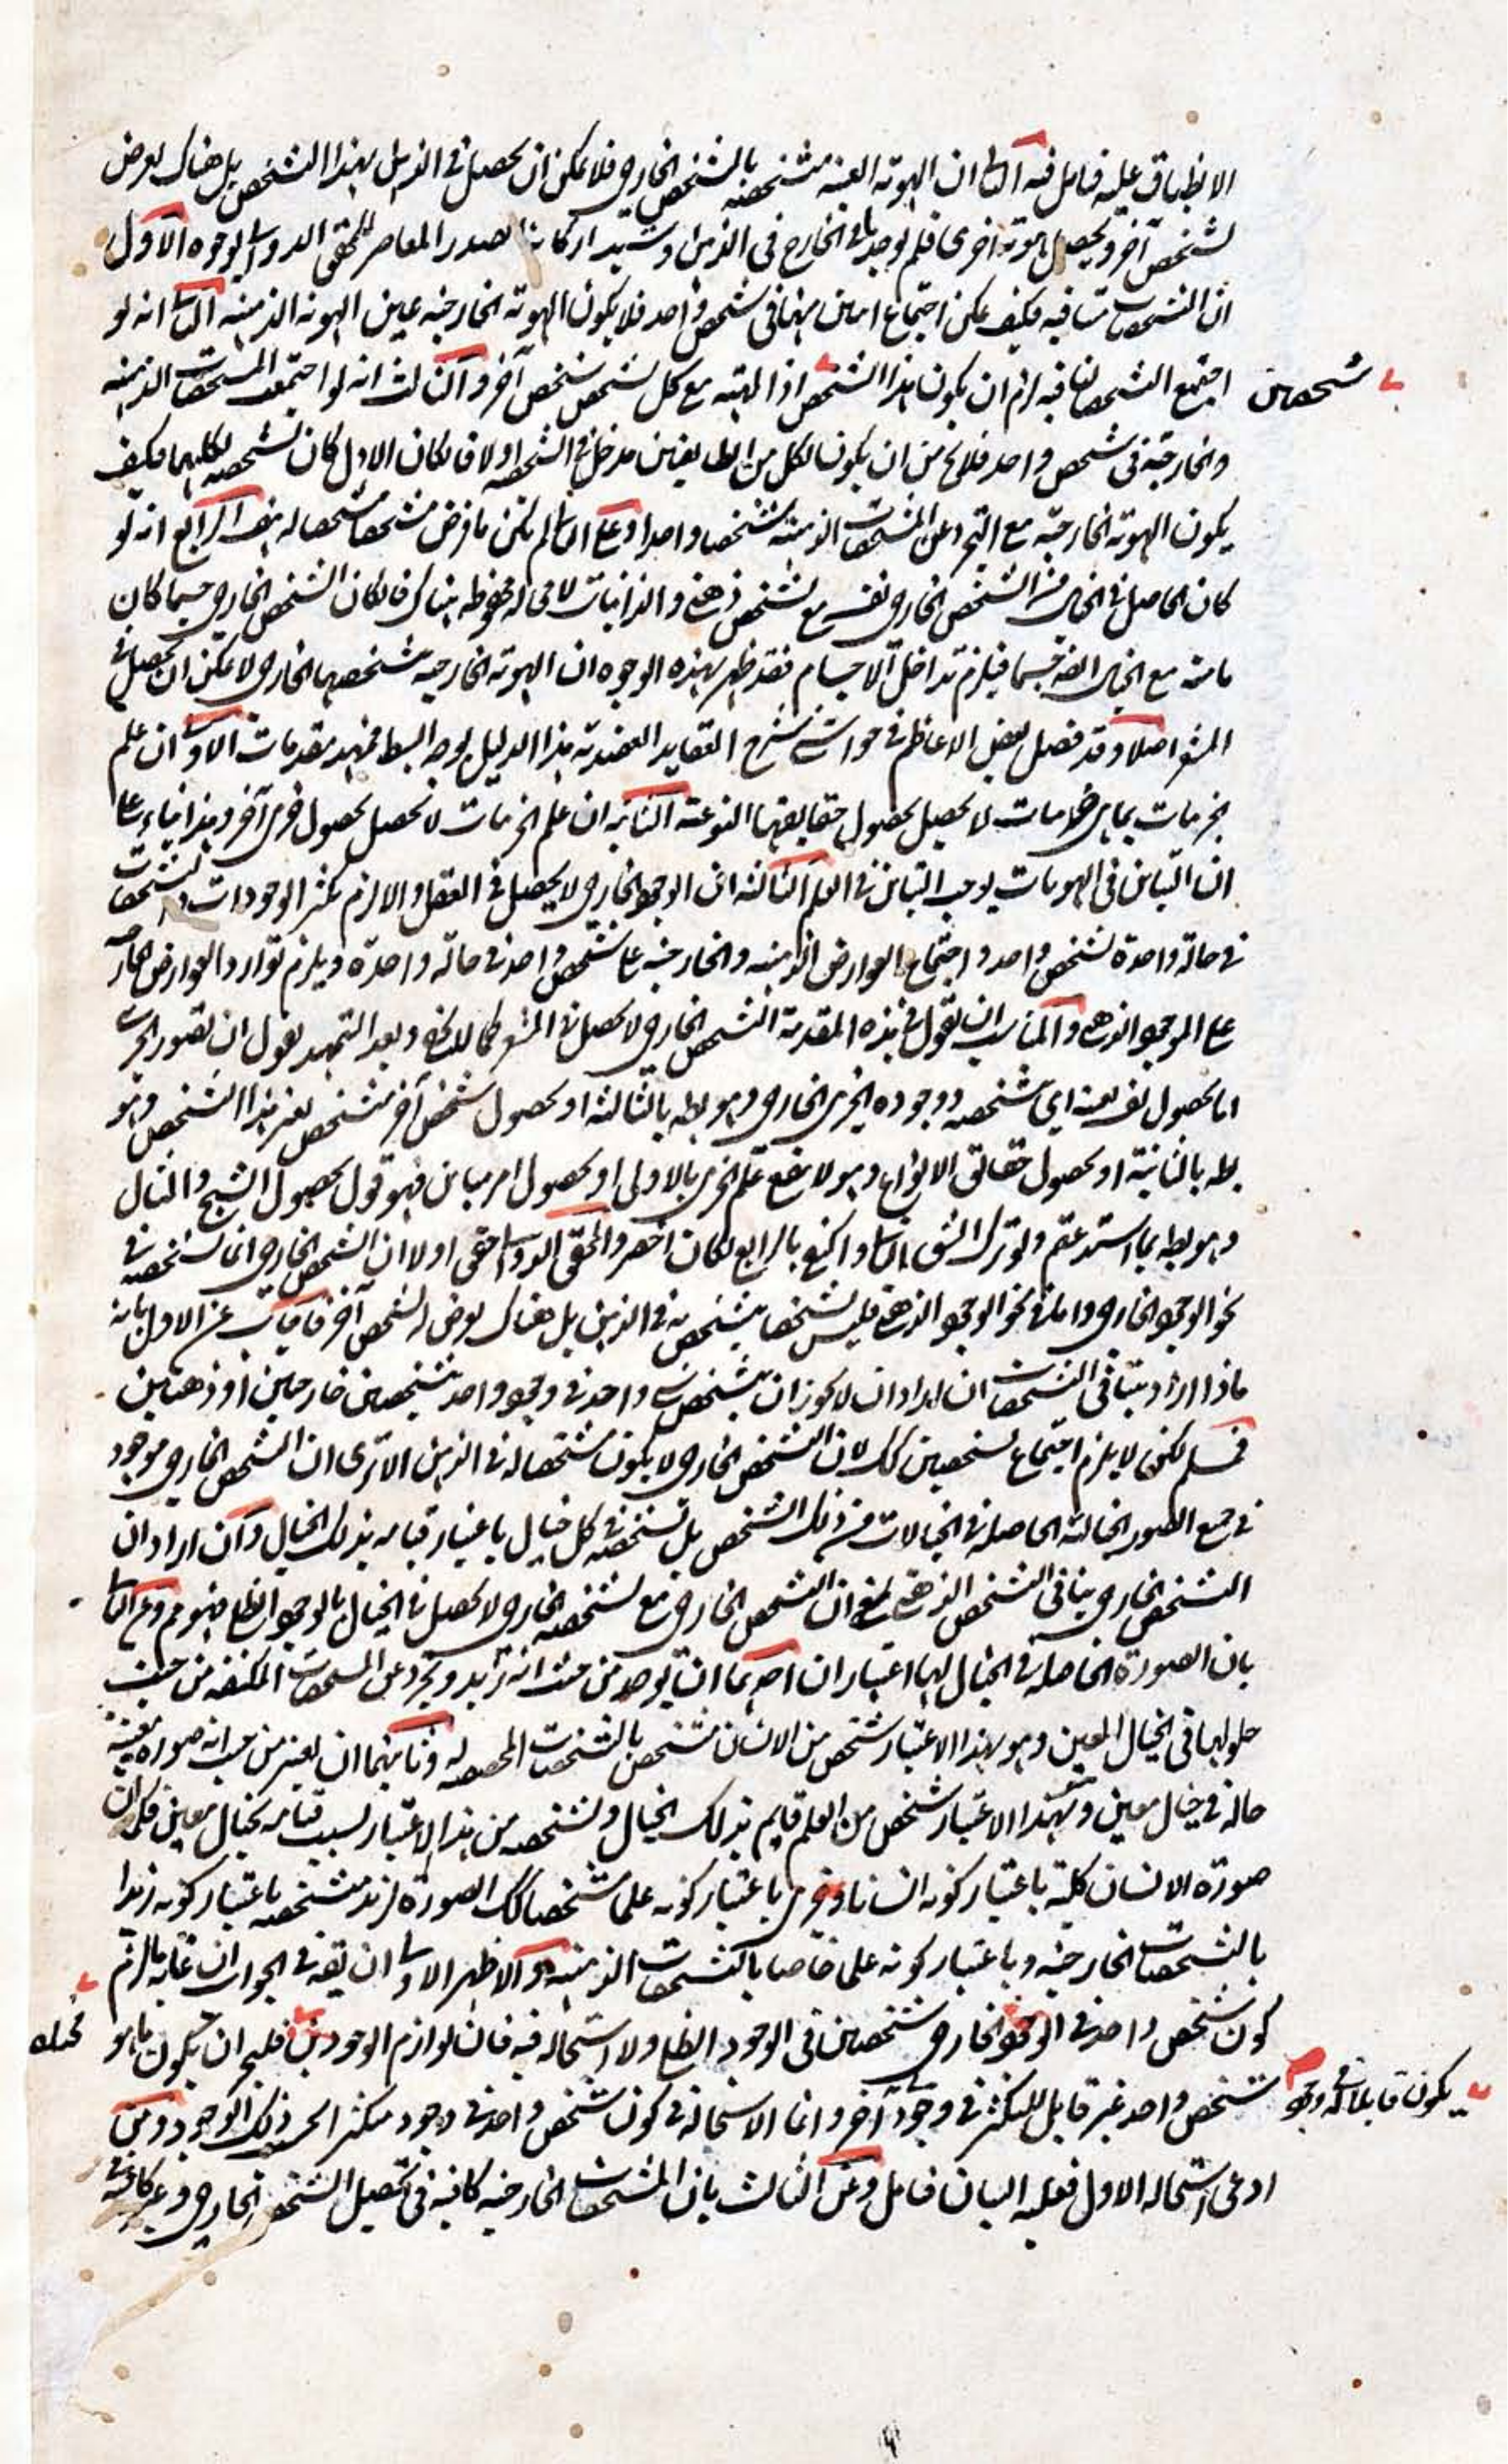 الانطباق عليه فتامل فيه الثانى ان الهوية العينية متشخصة بالتشخص الخارجى فلا يمكن ان يحصل فى الذهن بهذا التشخص بل هناك يعرض
لتشخص آخر ويحصل هوية اخرى فلم يوجد ما فى الخارج فى الذهن وشيد اركانه الصدر المعاصر للمحقق الدوانى بوجوه الاول
ان التشخصات متنافية فكيف يمكن اجتماع اثنين منها فى شخص واحد فلا يكون الهوية الخارجية عين الهوية الذهنية الثانى انه لو
اجتمع التشخصات المتنافية لزم ان يكون هذا الشخص اذ المهية مع كل تشخص شخص آخر والثالث انه لو اجتمعت المشخصات الذهنية
شخصين
والخارجية فى شخص واحد فلا يخ من ان يكون لكل من الطايفتين مدخل فى التشخص او لا فان كان الاول كان تشخصه بكليهما فكيف
يكون الهوية الخارجية مع التجرد عن المشخصات الذهنية شخصا واحدا وعلى الثانى لم يكن ما فرض مشخصا مشخصا له هف الرابع انه لو
كان الحاصل فى الخيال هذا الشخص الخارجى نفسه مع تشخص ذهنى والذاتيات لا محالة محفوظة هناك فان كان الشخص الخارجى جسما كان
مع الخيال ايضا جسما فيلزم تداخل الاجسام فقد ظهر بهذه الوجوه ان الهوية الخارجية بتشخصها الخارجى لا يمكن ان يحصل فى
المشعر اصلا وقد فصل بعض الاعاظم فى حواشى شرح العقايد العضدية هذا الدليل بوجه ابسط فمهد مقدمات الاولى ان علم
جزئيات بما هى جزئيات لا يحصل بحصول حقايقها النوعية الثانية ان علم الجزئيات لا يحصل بحصول جزئى آخر وهذا بناء على
ان التباين فى الهويات يوجب التباين فى العلم الثالثة ان الوجود الخارجى لا يحصل فى العقل والا لزم تكثر الوجودات والتشخصات
فى حالة واحدة لشخص واحد واجتماع العوارض الذهنية والخارجية على شخص واحد فى حالة واحدة ويلزم توارد العوارض الخارجية
على الموجود الذهنى والمناسب ان يقول فى هذه المقدمة الشخص الخارجى لا يحصل فى المشعر كما لا يخفى وبعد التمهيد نقول ان تصور الجزئى
اما بحصول نفسه بعينه اى بتشخصه ووجوده الجزئى الخارجى وهو بط بالثالثة او بحصول شخص آخر متشخص بغير هذا التشخص وهو
بط بالثانية او بحصول حقائق الانواع وهو لا ينفع علم الجزئى بالاولى او بحصول امر مباين فهو قول بحصول الشبح والمثال
وهو بط بما استدعتم ولو ترك الشق الثانى واكتفى بالرابع لكان اخصر والمحقق الدوانى حقق اولا ان الشخص الخارجى انما تشخصه فى
نحو الوجود الخارجى واما فى نحو الوجود الذهنى فليس شخصا بتشخصه فى الذهن بل هناك يعرض له تشخص آخر فاجاب عن الاول بانه
ماذا اراد بتنافى التشخصات ان اراد ان لا يجوز ان يتشخص شى واحد فى وجود واحد بتشخصين خارجيين او ذهنيين
فمسلم لكن لا يلزم اجتماع تشخصين كك لان التشخص الخارجى لا يكون مشخصا له فى الذهن الا ترى ان الشخص الخارجى موجود
فى جميع الصور الخيالية الحاصلة فى الخيالات من ذلك الشخص بل تشخصه فى كل خيال باعتبار قيامه بذلك الخيال وان اراد ان
التشخص الخارجى ينافى التشخص الذهنى بمعنى ان الشخص الخارجى مع تشخصه الخارجى لا يحصل فى الخيال بالوجود الظلى فهو مم وعن الثانى
بان الصورة الحاصلة فى الخيال لها اعتباران احدهما ان توخذ من حيث انه زيد ويجرد عن المشخصات المكتنفة من حيث
حلولها فى الخيال المعين وهو بهذا الاعتبار شخص من الانسان متشخص بالتشخصات المحصلة له وثانيهما ان يعتبر من حيث انه صورة معينة
حالة فى خيال معين وبهذا الاعتبار شخص من العلم قايم بذلك الخيال وتشخصه من هذا الاعتبار بسبب قيامه بخيال معين فكما ان
صورة الانسان كلية باعتبار كونه انسانا وجزئى باعتبار كونه علما شخصا كك الصورة لزيد متشخصة باعتبار كونه زيدا
بالتشخصات الخارجية وباعتبار كونه علما خاصا بالتشخصات الذهنية والاظهر الاولى ان يقه فى الجواب ان غاية ما لزم
كون شخص واحد فى الوجود الخارجى شخصين فى الوجود الظلى ولا استحالة فيه فان لوازم الوجودين فليجز ان يكون ما هو
شخص واحد غير قابل للتكثر فى وجود آخر وانما الاستحالة فى كون شخص واحد فى وجود متكثرا بحسب ذلك الوجود ومن
يكون قابلا له فى وجود
ادعى استحالة الاول فعليه البيان فتامل وعن الثالث بان المشخصات الخارجية كافية فى تحصيل الشخص الخارجى وغير كافية فى